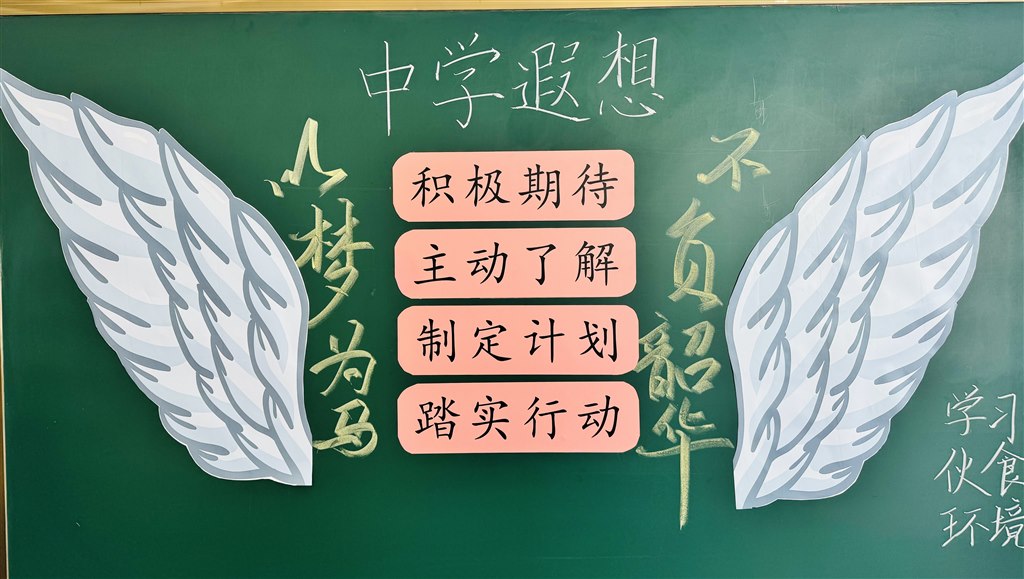 中学遐想
以梦为马
积极期待
主动了解
制定计划
踏实行动
不负韶华
学习
伙食
环境